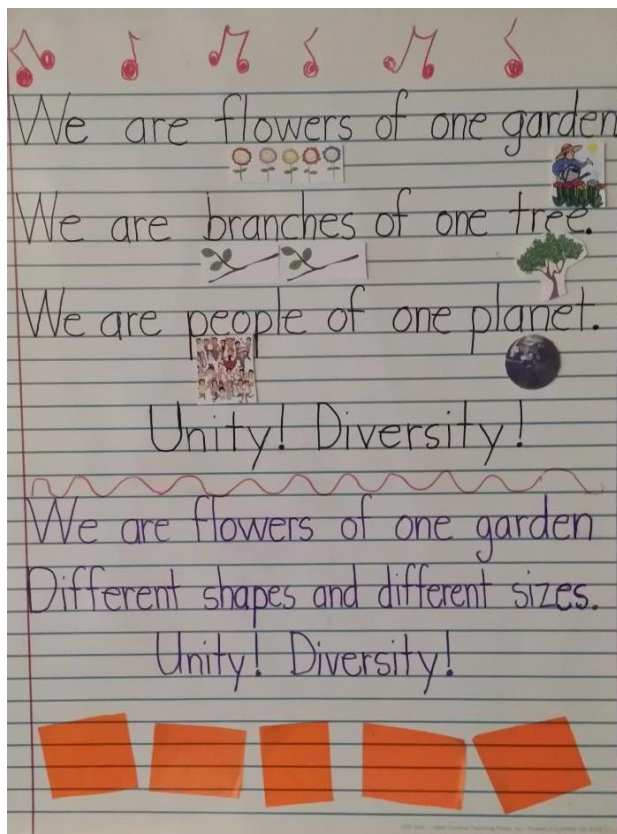 We are flowers of one garden
We are branches of one tree.
We are people of one planet.
Unity! Diversity!
We are flowers of one garden
Different shapes and different sizes.
Unity! Diversity!